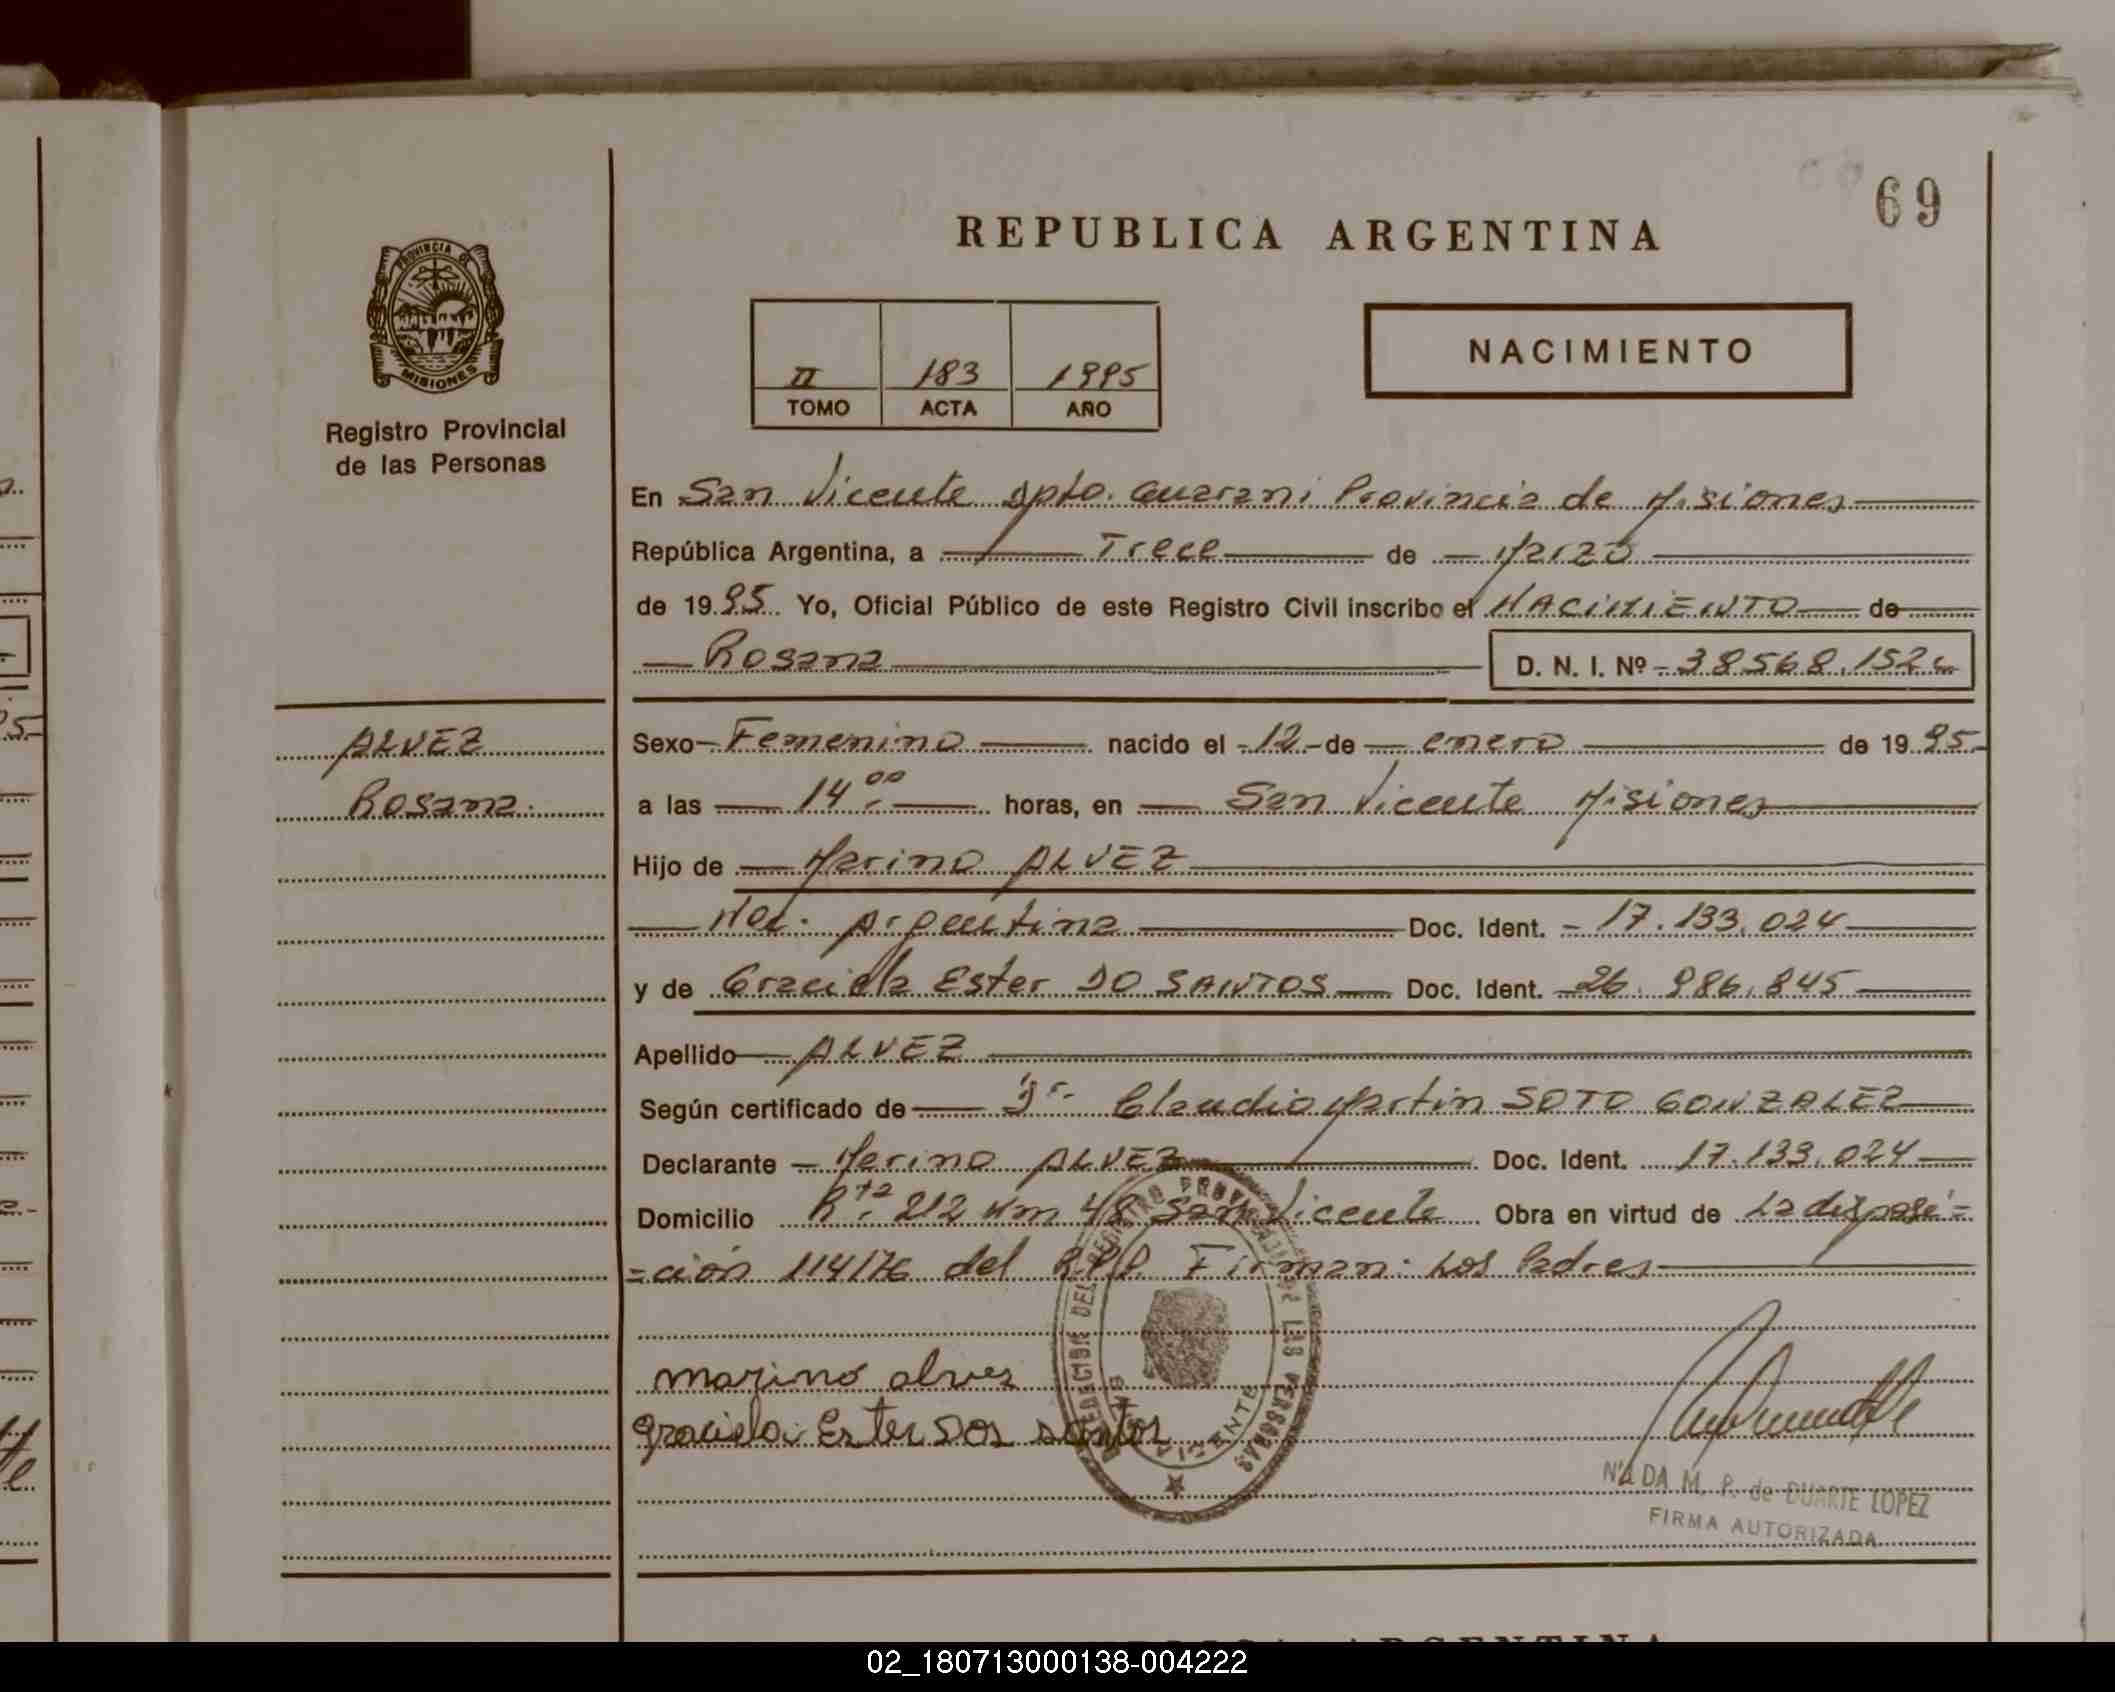 69
REPUBLICA ARGENTINA
PROVINCIA DE
MISIONES
Registro Provincial
de las Personas
II 183 1995
TOMO ACTA AÑO
NACIMIENTO
En San Vicente Dpto. Guarani Provincia de Misiones
República Argentina, a Trece de Marzo
de 1995 Yo, Oficial Público de este Registro Civil inscribo el NACIMIENTO de
Rosana D. N. I. Nº 38568.152
ALVEZ
Rosana.
Sexo Femenino nacido el 12 de enero de 1995
a las 14 00 horas, en San Vicente Misiones
Hijo de Marino ALVEZ
Nac. Argentina Doc. Ident. 17.133.024
y de Graciela Ester DO SANTOS Doc. Ident. 26.986.845
Apellido ALVEZ
Según certificado de Dr. Claudio Martin SOTO GONZALEZ
Declarante Marino ALVEZ Doc. Ident. 17.133.024
Domicilio Rta. 212 Km 48 San Vicente Obra en virtud de La disposi=
=ción 114/76 del R.P.P. Firman: Los Padres
marino alvez
graciela Ester Dos santos
DEL REGISTRO PROVINCIAL DE LAS PERSONAS
VICENTE
M. P. de DUARTE LOPEZ
FIRMA AUTORIZADA
02_180713000138-004222